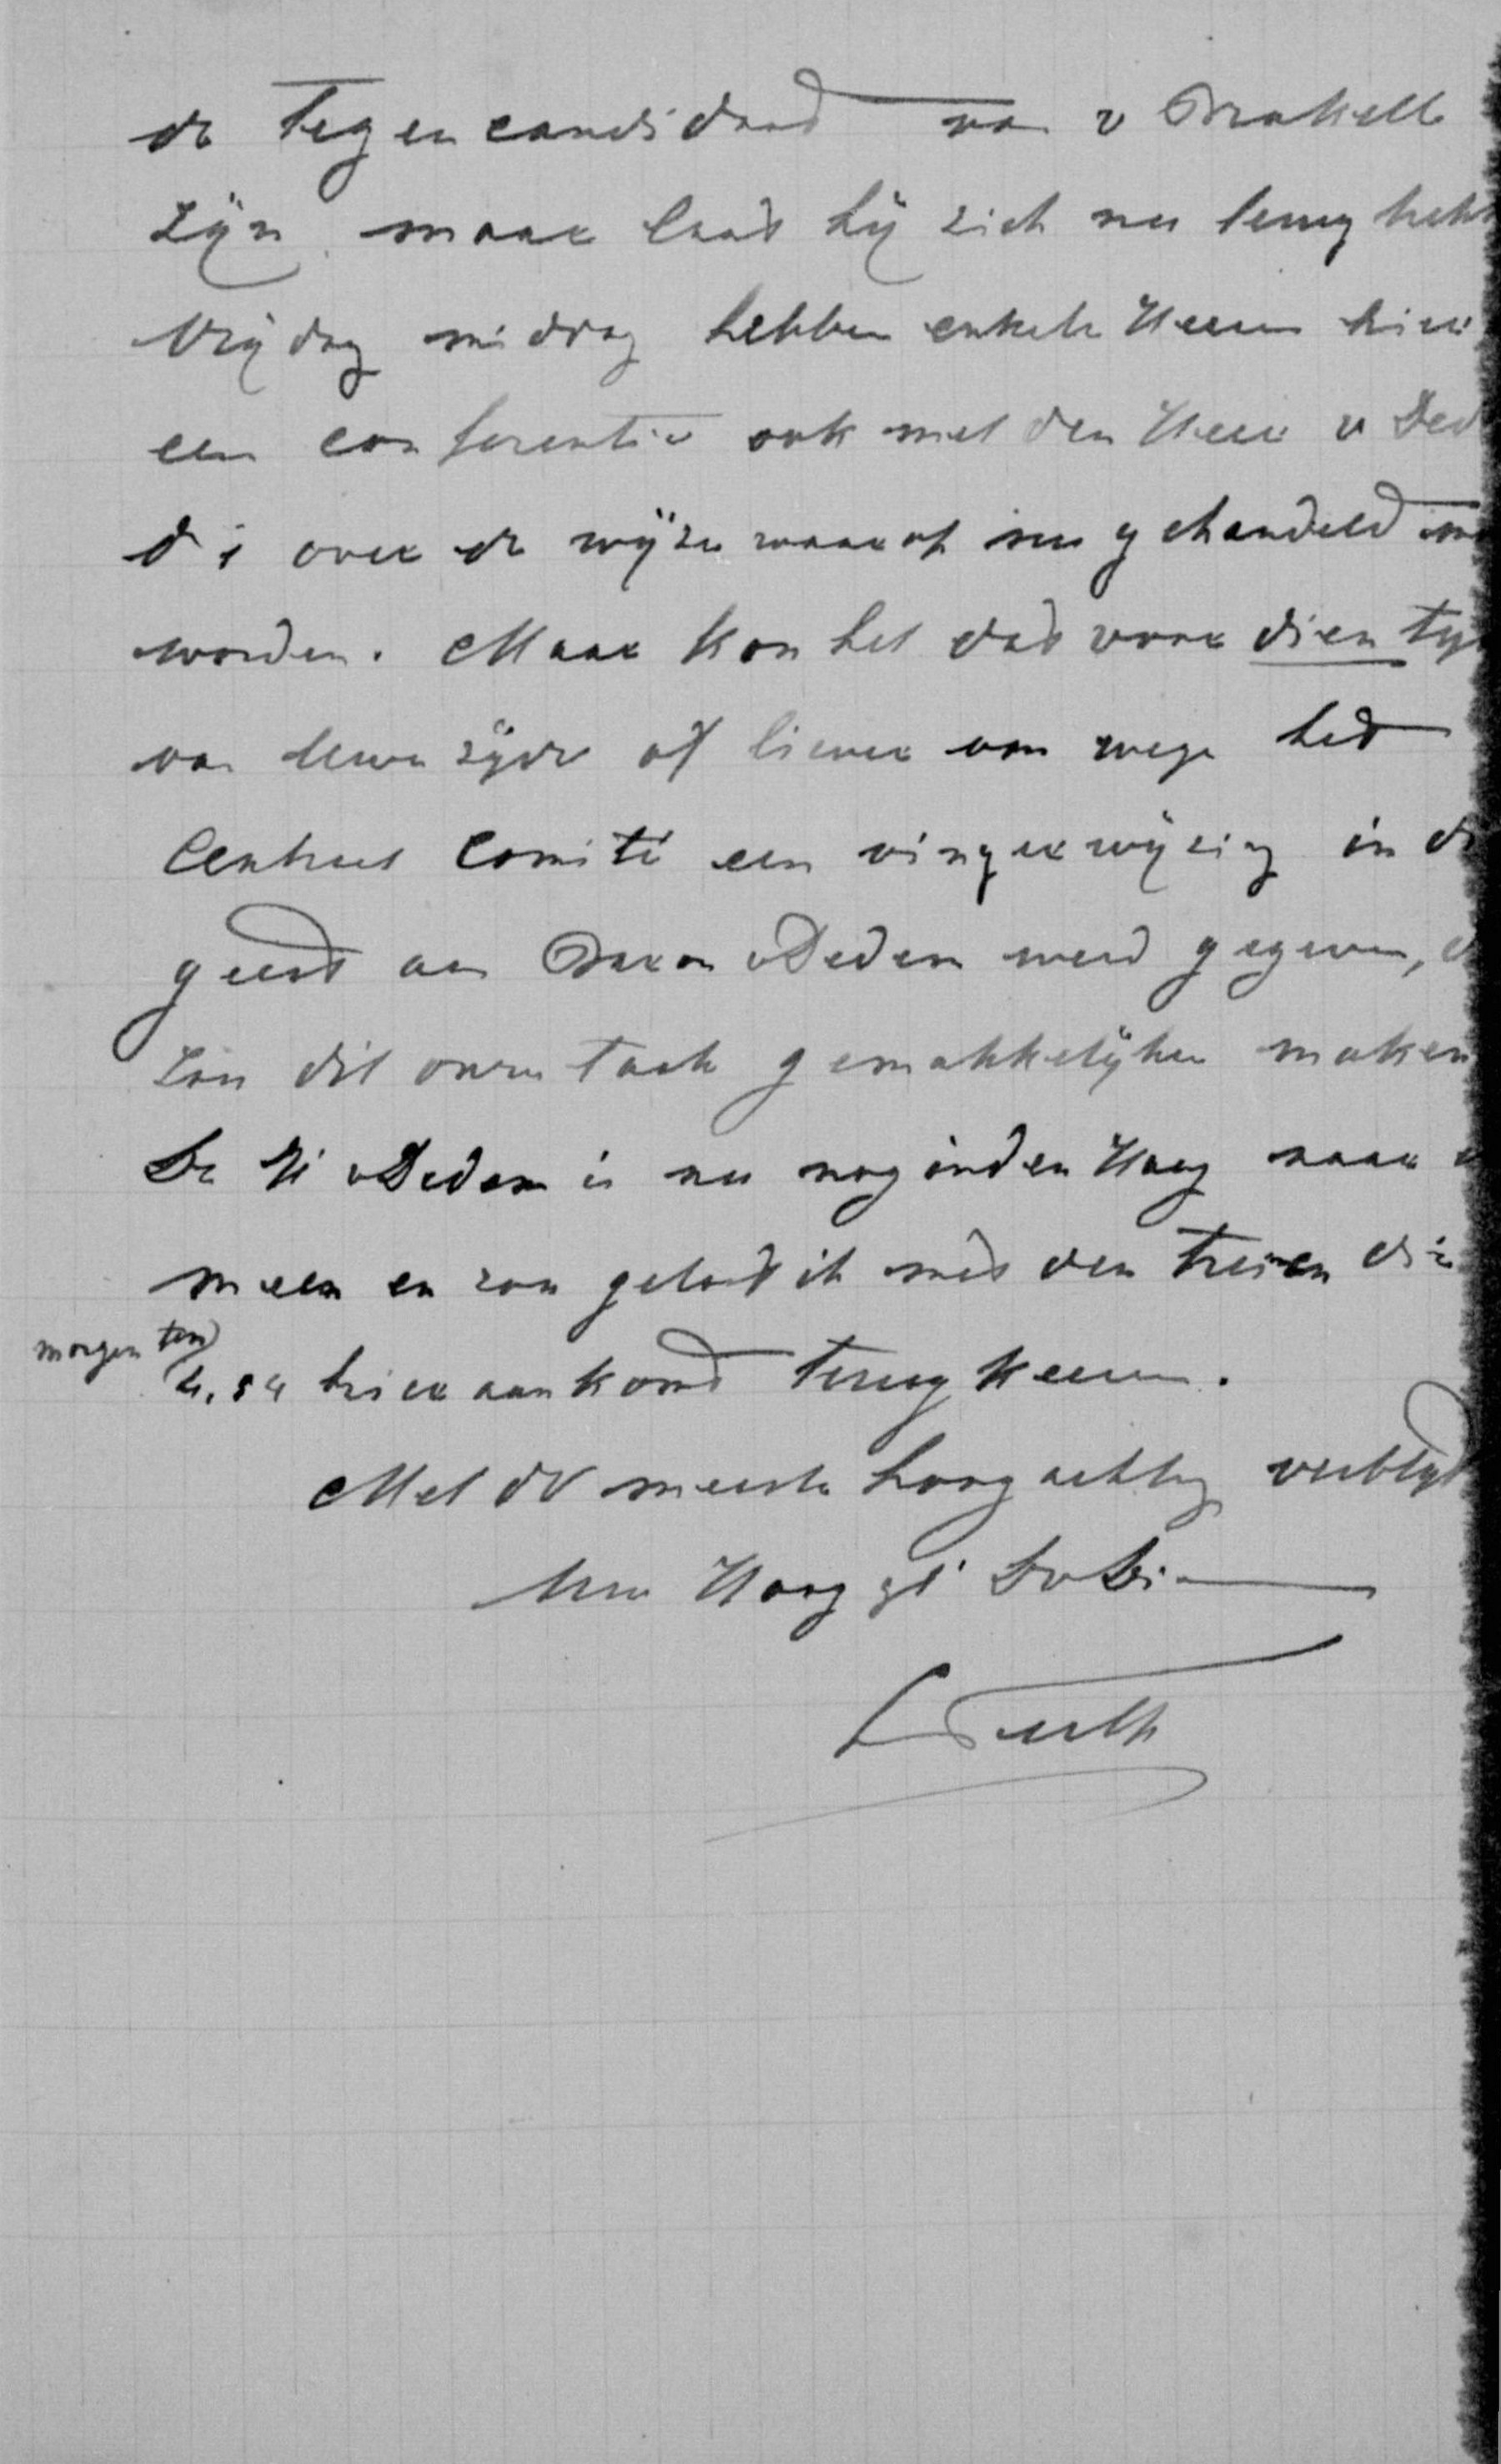 de tegencandidaad van v Brakell
zijn, maar laat hij zich nu terug
Vrijdag middag hebben enkele Heeren hier
een conferentie ook met den Heer v Ded
di over de wijze waarop nu gehandeld
worden. Maar kon het dat voor dien tijd
van Uwe zijde of liever van wege het
Centraal Comité een vingerwijzing in
geest aan Baron v Dedem werd gegeven,
zou dit onze taak gemakkelijker maken
De H v Dedem is nu nog in den Haag naar
meen en zou geloof ik met den trein die
morgen ten
4,54 hier aankomd terug keeren.
Met de meeste hoogachting verblijf
Uw Hoog gb